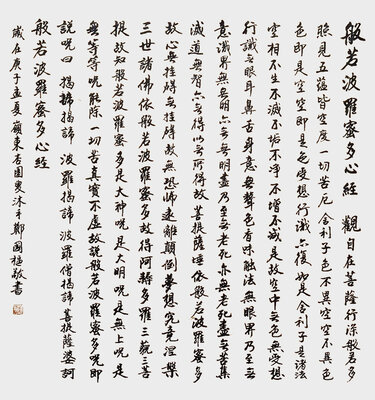 般若波羅蜜多心經 觀自在菩薩行深般若多
照見五蘊皆空度一切苦厄舍利子色不異空空不異色
色即是空空即是色受想行識亦復如是舍利子是諸法
空相不生不滅不垢不淨不增不減是故空中無色無受想
行識無眼耳鼻舌身意無聲色香味触法無眼界乃至無
意識界無無明亦無無明盡乃至無老死亦無老死盡無苦集
滅道無智亦無得以無所得故菩提薩埵依般若波羅蜜多
故心無挂礙無挂礙故無恐怖遠離顛倒夢想究竟涅槃
三世諸佛依般若波羅蜜多故得阿耨多羅三藐三菩
提故知般若波羅蜜多是大神呪是大明呪是無上呪是
無等等呪能除一切苦真實不虛故說般若波羅蜜多呪即
說呪曰 揭諦揭諦 波羅揭諦 波羅僧揭諦 菩提薩婆訶
般若波羅蜜多心經
歲在庚子孟夏嶺東杏園叟沐手鄭國植敬書